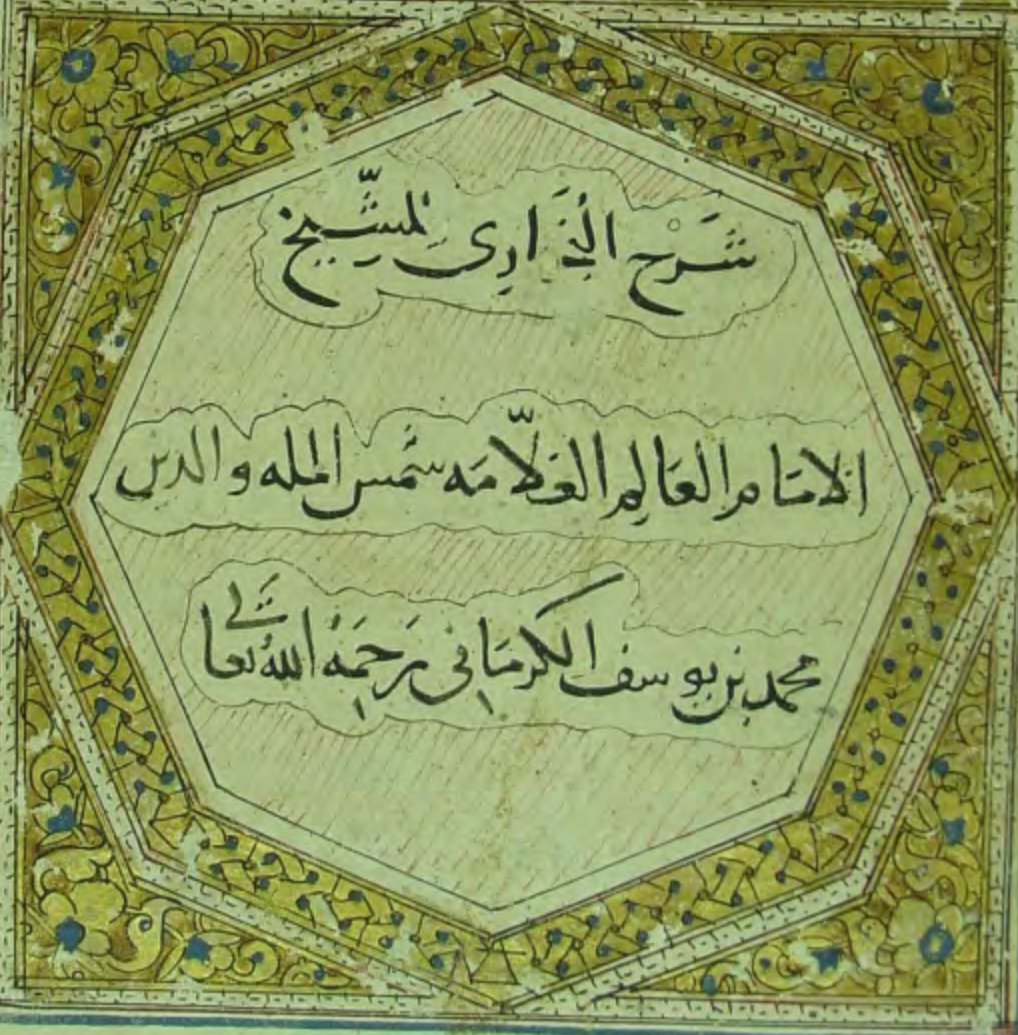 شرح البخارى للشيخ
الامام العالم العلامه شمس المله والدين
محمد بن يوسف الكرمانى رحمه الله تعالى